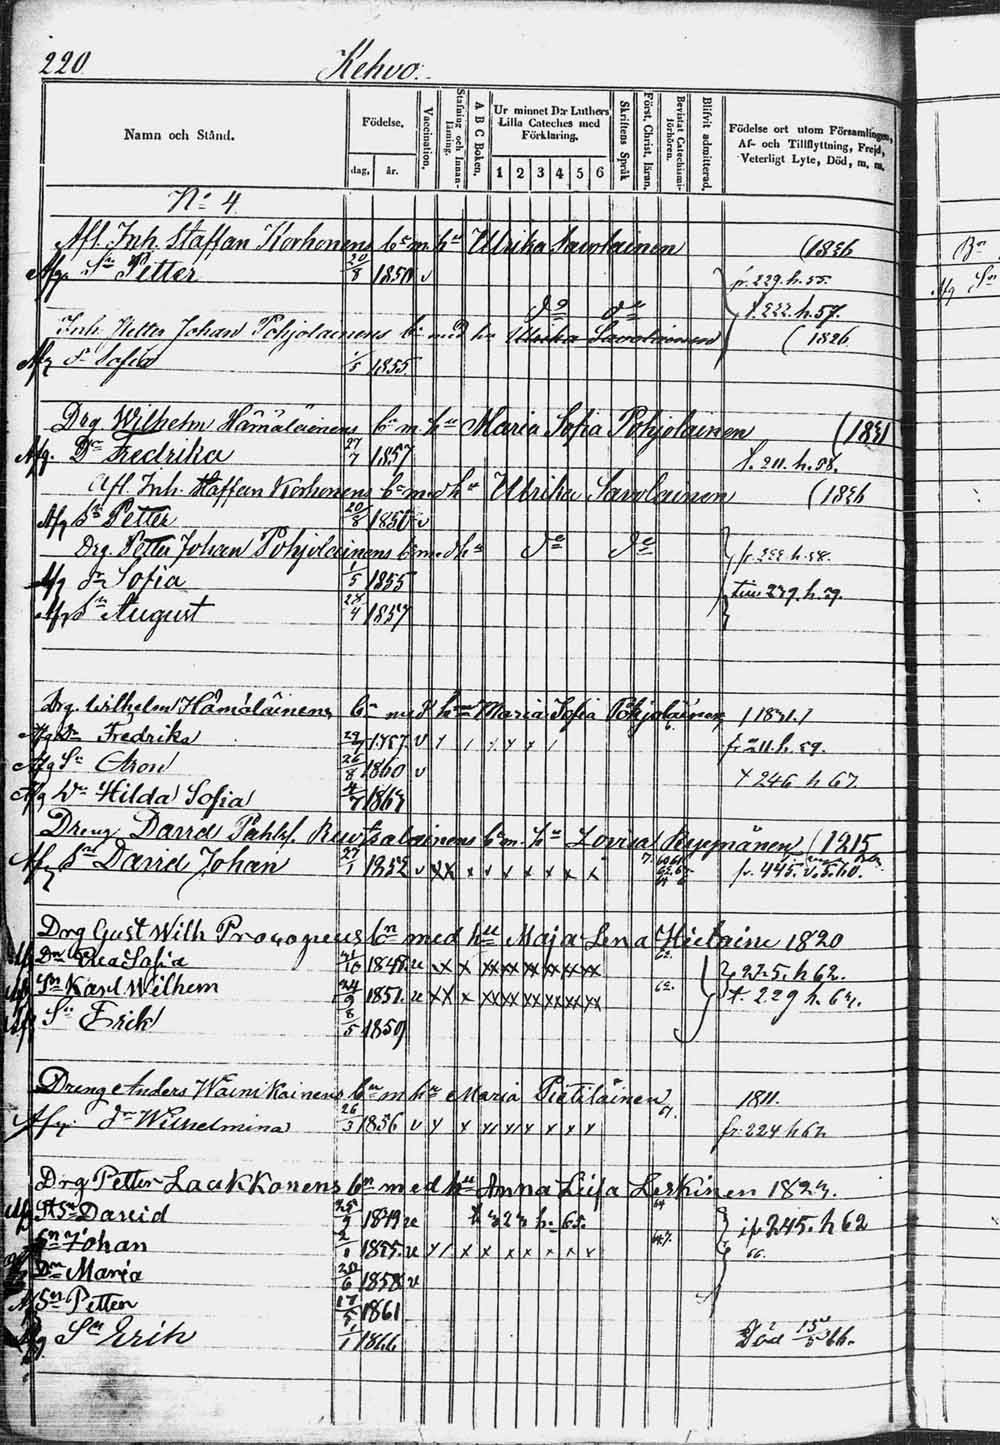 220. Kehvo.
Namn och Stånd.
Födelse.
dag.
år.
Vaccination.
Stafning och Innan-läsning.
A B C Boken.
Ur minnet D:r Luthers Lilla Cateches med Förklaring.
1 2 3 4 5 6
Skriftens Språk
Först. Christ. läran.
Bevistat Catechismi-förhören.
Blifvit admitterad.
Födelse ort utom Församlingen, Af- och Tillflyttning, Frejd, Veterligt Lyte, Död, m. m.
No 4
Afl. Inh. Staffan Korhonens bn m. hu Ulrika Savolainen (1826
Afg. Sn Petter 20/8 1850 v fr. 229. h. 55.
do do t. 222. h. 57.
Inh. Petter Johan Pohjolainens bn med hu Ulrika Savolainen (1826
Afg Dr Sofia 1/5 1855
Drg Wilhelm Hämäläinens bn m. hu Maria Sofia Pohjolainen (1831
Afg. Dr Fredrika 27/7 1857 t. 211. h. 58.
Afl. Inh. Staffan Korhonens bn med hu Ulrika Savolainen (1826
Afg Sn Petter 20/8 1850 v
Drg. Petter Johan Pohjolainens bn med hu do do fr. 222. h. 58.
Afg Dr Sofia 1/5 1855 till 279. h. 59.
Afg Sn August 28/4 1857
Drg. Wilhelm Hämäläinens bn med hu Maria Sofia Pohjolainen (1831.)
Afg Dr Fredrika 27/7 1857. v fr 211. h. 59.
Afg Sn Aron 26/8 1860 v t 246 h 67.
Afg Dr Hilda Sofia 4/7 1863
Dreng David Påhl. Reutsalainens bn m. hu Lovisa Ryymänen (1815
Afg Sn David Johan 27/1 1852 v XX x x x x x x x 7. fr. 445.
Drg Gust Wilh Procopeus bn med hu Maja Lena Hietaine 1820
Dr Sofia v XX x xx xx xx xx xx xx 62. 225. h 62.
Sn Karl Wilhem 24/9 1851. v XX x xx xx xx xx xx xx 62. t. 229 h. 63.
Sn Erik 8/5 1859
Dreng Anders Wainikainens bn m hu Maria Pietiläinen 1811.
Afg. Dr Wilhelmina 26/3 1856 v x x x x x x x x 61. fr. 224 h 62
Drg Petter Laakkonens bn med hu Anna Lisa Leskinen 1823.
Afg Sn David 25/9 1849 v t 323 h. 65. 64 ifr 245. h 62
Sn Johan 1855. v x x x x x x x x 66.
Dr Maria 20/6 1858 v
Sn Petter 17/5 1861
Sn Erik 1/1 1866 Död 66.
Bn
Afg Sn